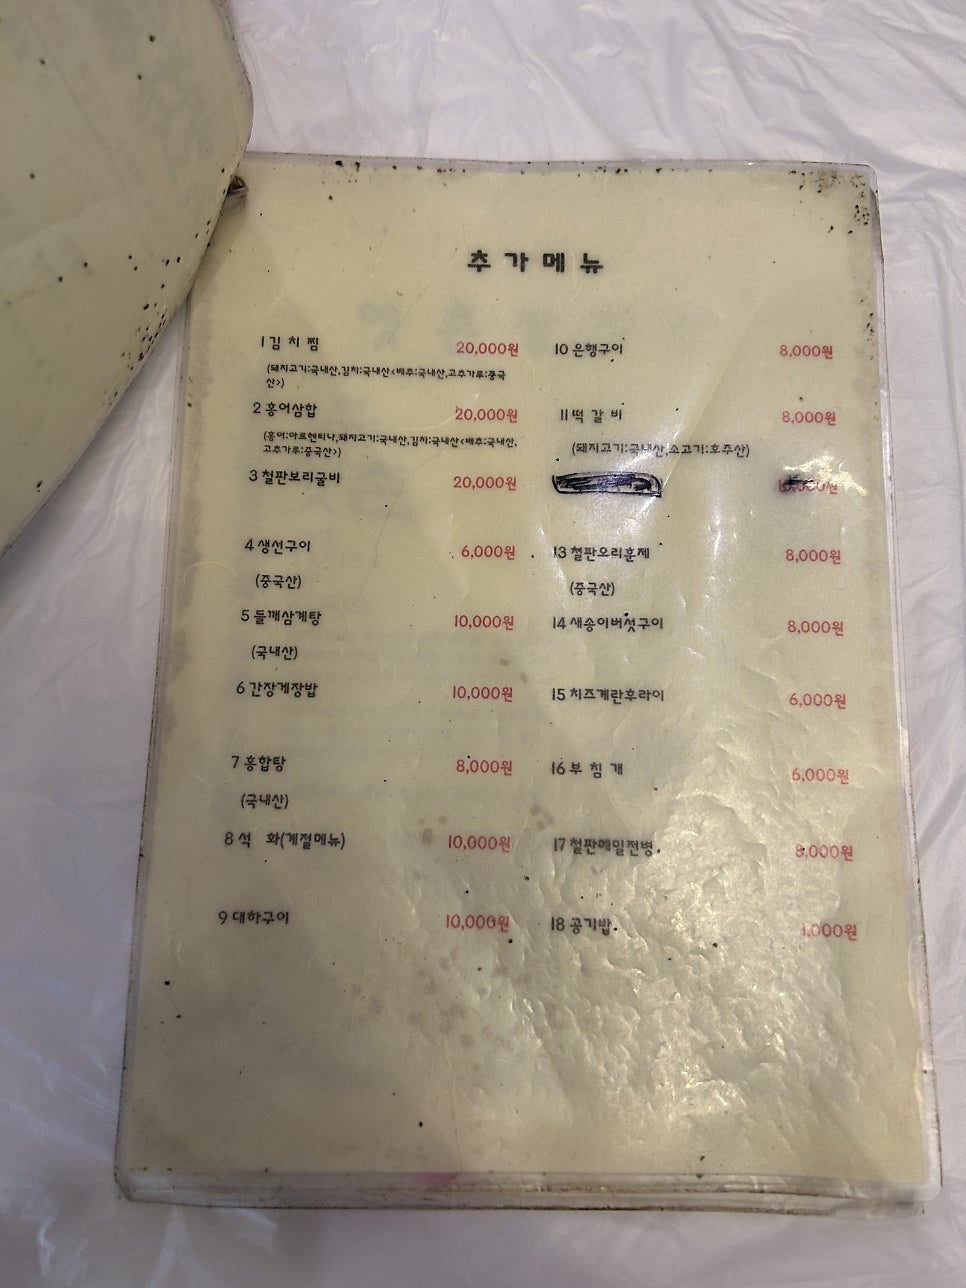 추가메뉴
1 김 치 찜 20,000원
(돼지고기:국내산,김치:국내산<배추:국내산,고추가루:중국
산>)
2 홍어삼합 20,000원
(홍어:아르헨티나,돼지고기:국내산,김치:국내산<배추:국내산,
고추가루:중국산>)
3 철판보리굴비 20,000원
4 생선구이 6,000원
(중국산)
5 들깨삼계탕 10,000원
(국내산)
6 간장게장밥 10,000원
7 홍합탕 8,000원
(국내산)
8 석 화(계절메뉴) 10,000원
9 대하구이 10,000원
10 은행구이 8,000원
11 떡 갈 비 8,000원
(돼지고기:국내산,소고기:호주산)
13 철판오리훈제 8,000원
(중국산)
14 새송이버섯구이 8,000원
15 치즈계란후라이 6,000원
16 부 침 개 6,000원
17 철판메밀전병 8,000원
18 공기밥 1,000원